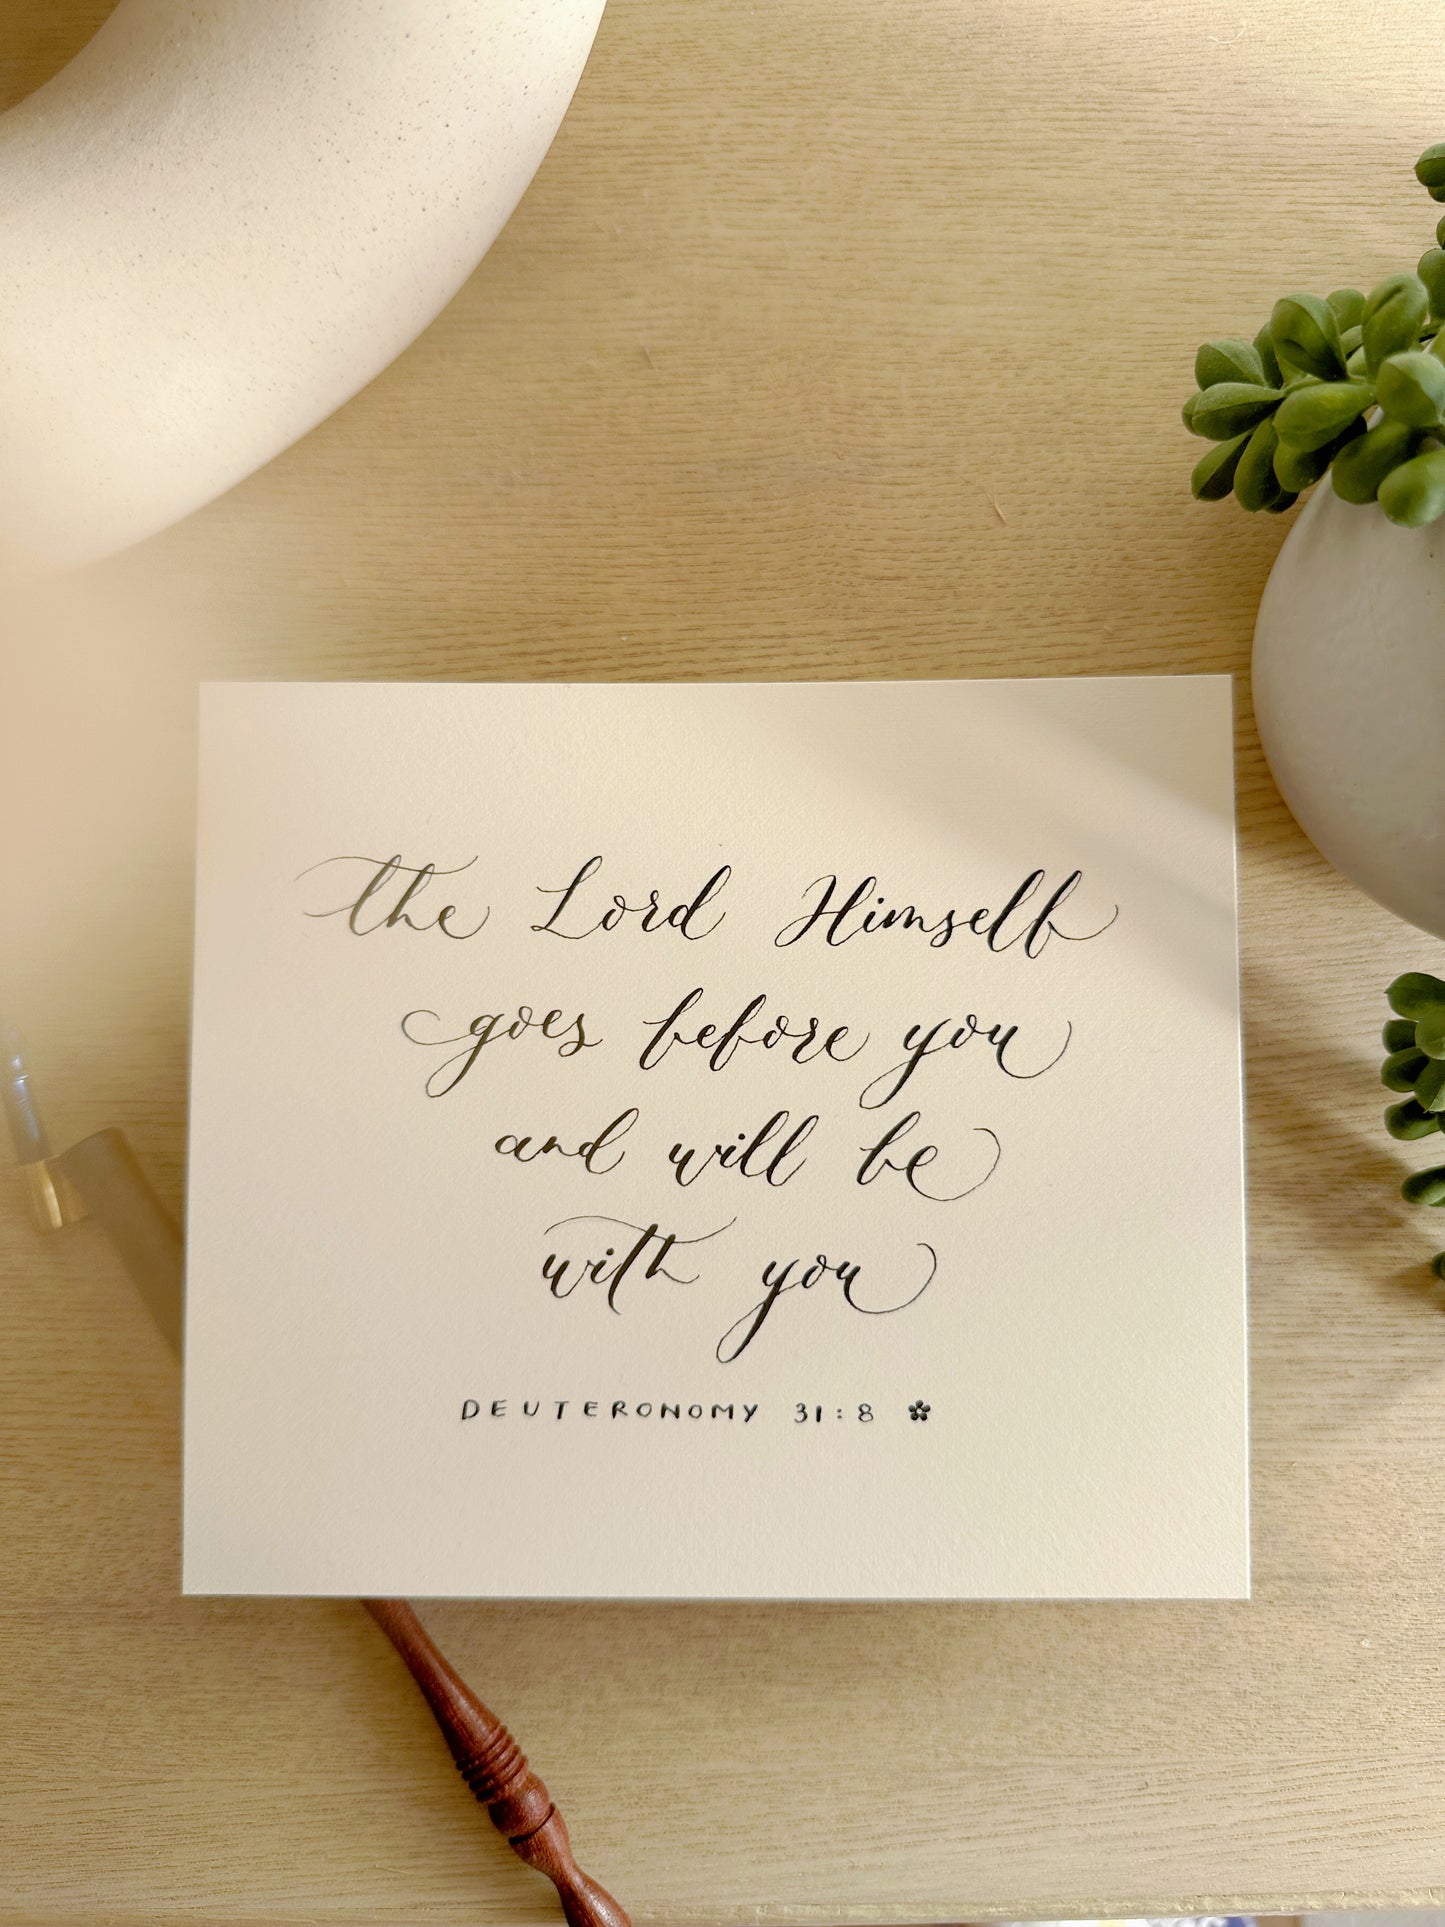 the Lord Himself
goes before you
and will be
with you
DEUTERONOMY 31:8